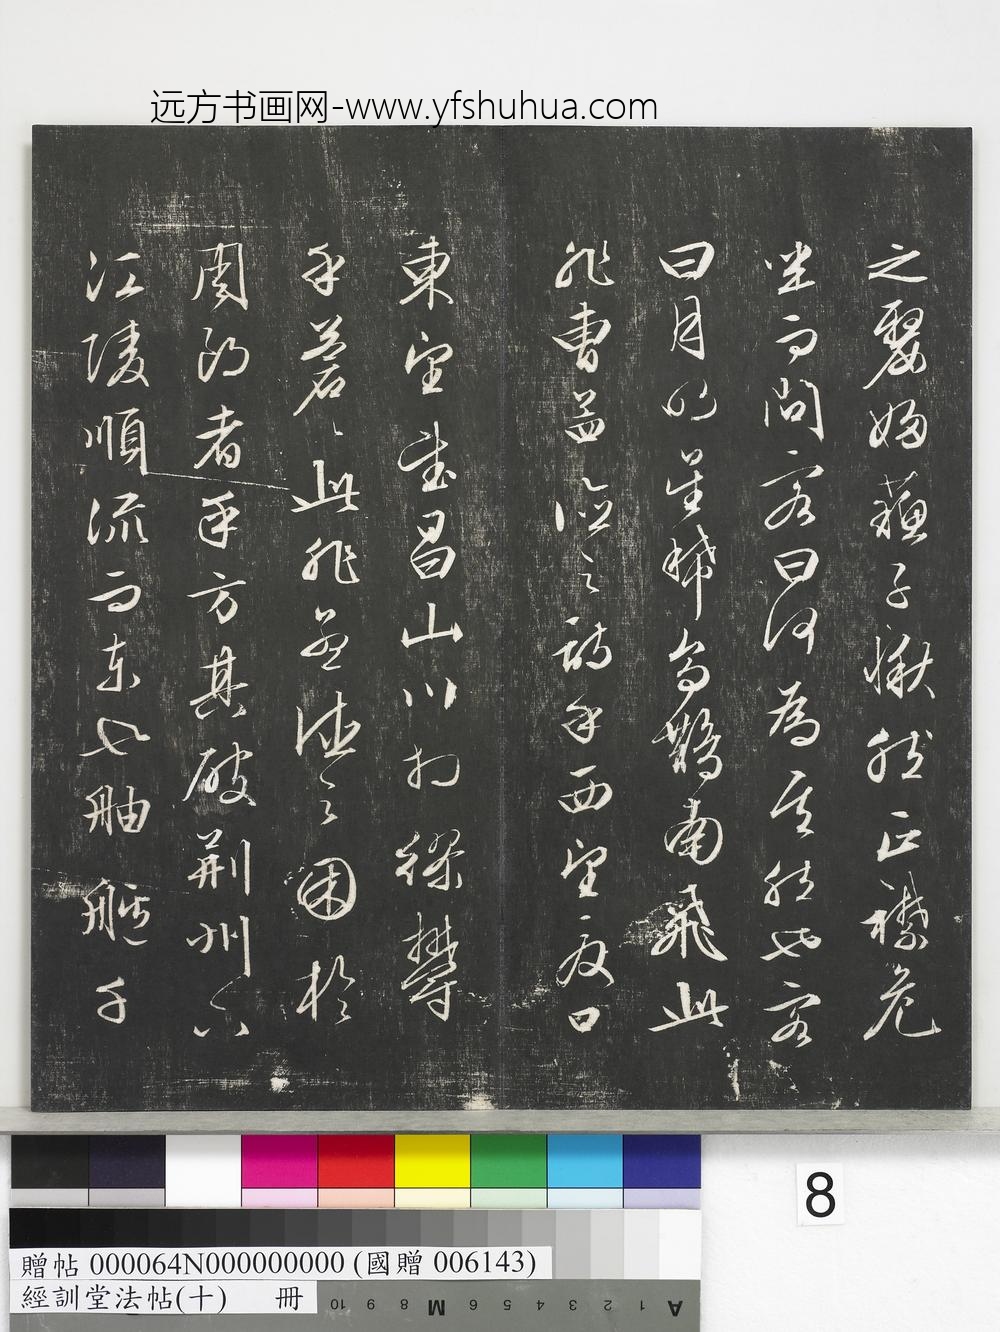 远方书画网-www.yfshuhua.com
之嫠婦蘓子愀然正襟危
坐而問客曰何為其然也客
曰月明星稀烏鵲南飛此
非曹孟德之詩乎西望夏口
東望武昌山川相繆鬱
乎蒼〻此非孟德之困於
周郎者乎方其破荊州下
江陵順流而東也舳艫千
8
贈帖 000064N000000000 (國贈 006143)
經訓堂法帖(十) 冊
10 9 8 M 6 5 4 3 2 1 A